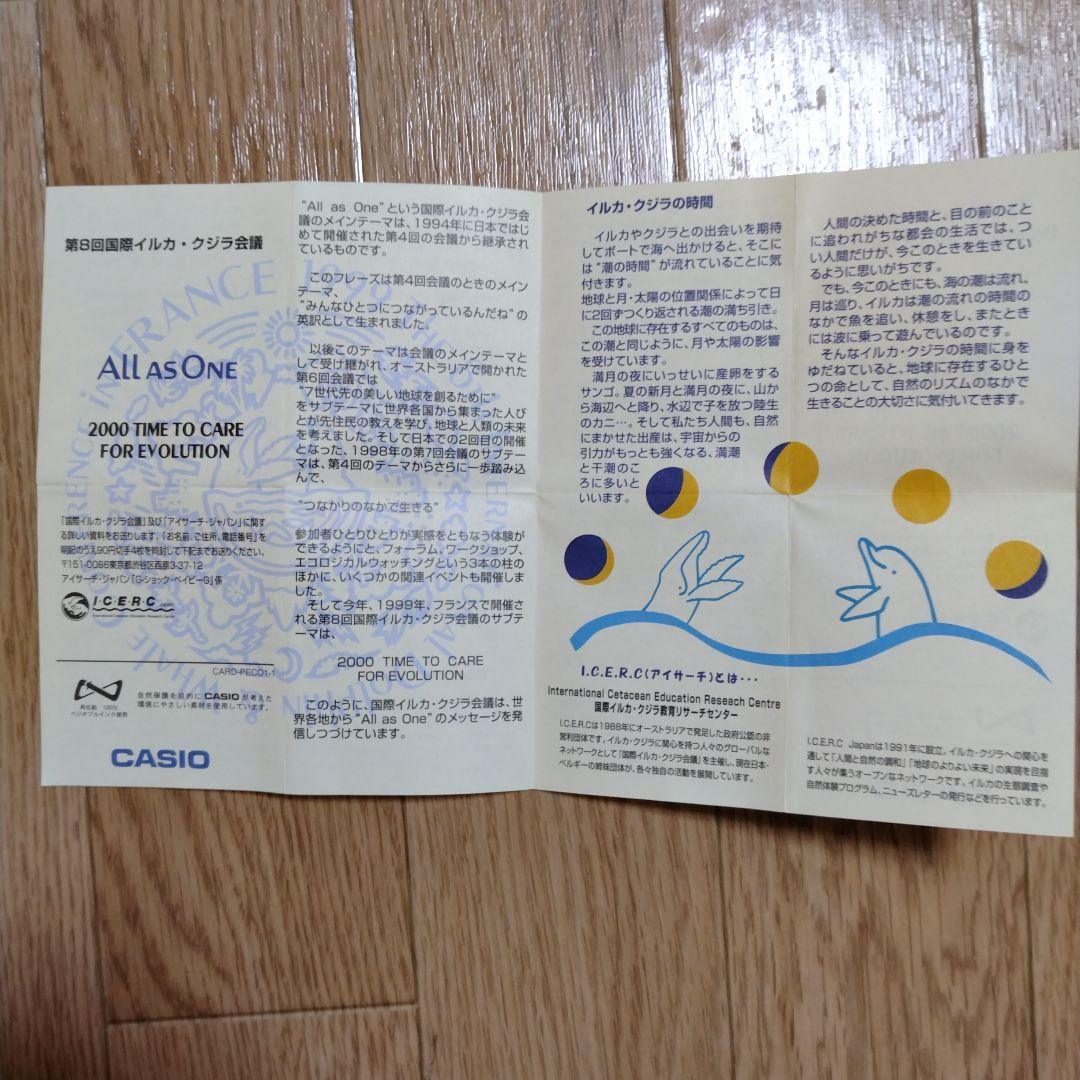 第8回国際イルカ・クジラ会議
ALL AS ONE
2000 TIME TO CARE
FOR EVOLUTION
「国際イルカ・クジラ会議」及び「アイサーチ・ジャパン」に関す
る詳しい資料をお送りします。「お名前、ご住所、電話番号」を
明記のうえ90円切手4枚を同封して下記までお送りください。
〒151-0066東京都渋谷区西原3-37-12
アイサーチ・ジャパン「G-ショック・ベイビーG」係
I・C・E・R・C
International Cetacean Education Research Centre
CARD-PEC01-1
再生紙 100%
ベジタブルインク使用
自然保護を目的にCASIOが考えた
環境にやさしい素材を使用しています。
CASIO
“All as One”という国際イルカ・クジラ会
議のメインテーマは、1994年に日本ではじ
めて開催された第4回の会議から継承され
ているものです。
このフレーズは第4回会議のときのメイン
テーマ、
“みんなひとつにつながっているんだね”の
英訳として生まれました。
以後このテーマは会議のメインテーマと
して受け継がれ、オーストラリアで開かれた
第6回会議では
“7世代先の美しい地球を創るために”
をサブテーマに世界各国から集まった人び
とが先住民の教えを学び、地球と人類の未来
を考えました。そして日本での2回目の開催
となった、1998年の第7回会議のサブテー
マは、第4回のテーマからさらに一歩踏み込
んで、
“つながりのなかで生きる”
参加者ひとりひとりが実感をともなう体験が
できるようにと、フォーラム、ワークショップ、
エコロジカルウォッチングという3本の柱の
ほかに、いくつかの関連イベントも開催しま
した。
そして今年、1999年、フランスで開催さ
れる第8回国際イルカ・クジラ会議のサブテ
ーマは、
2000 TIME TO CARE
FOR EVOLUTION
このように、国際イルカ・クジラ会議は、世
界各地から“All as One”のメッセージを発
信しつづけています。
イルカ・クジラの時間
イルカやクジラとの出会いを期待
してボートで海へ出かけると、そこに
は“潮の時間”が流れていることに気
付きます。
地球と月・太陽の位置関係によって日
に2回ずつくり返される潮の満ち引き。
この地球に存在するすべてのものは、
この潮と同じように、月や太陽の影響
を受けています。
満月の夜にいっせいに産卵をする
サンゴ。夏の新月と満月の夜に、山か
ら海辺へと降り、水辺で子を放つ陸生
のカニ…。そして私たち人間も、自然
にまかせた出産は、宇宙からの
引力がもっとも強くなる、満潮
と干潮のこ
ろに多いと
いいます。
I.C.E.R.C(アイサーチ)とは・・・
International Cetacean Education Reseach Centre
国際イルカ・クジラ教育リサーチセンター
I.C.E.R.Cは1988年にオーストラリアで発足した政府公認の非
営利団体です。イルカ・クジラに関心を持つ人々のグローバルな
ネットワークとして「国際イルカ・クジラ会議」を主催し、現在日本・
ベルギーの姉妹団体が、各々独自の活動を展開しています。
人間の決めた時間と、目の前のこと
に追われがちな都会の生活では、つ
い人間だけが、今このときを生きてい
るように思いがちです。
でも、今このときにも、海の潮は流れ、
月は巡り、イルカは潮の流れの時間の
なかで魚を追い、休憩をし、またとき
には波に乗って遊んでいるのです。
そんなイルカ・クジラの時間に身を
ゆだねていると、地球に存在するひと
つの命として、自然のリズムのなかで
生きることの大切さに気付いてきます。
I.C.E.R.C Japanは1991年に設立。イルカ・クジラへの関心を
通して「人間と自然の調和」「地球のよりよい未来」の実現を目指
す人々が集うオープンなネットワークです。イルカの生態調査や
自然体験プログラム、ニューズレターの発行などを行っています。